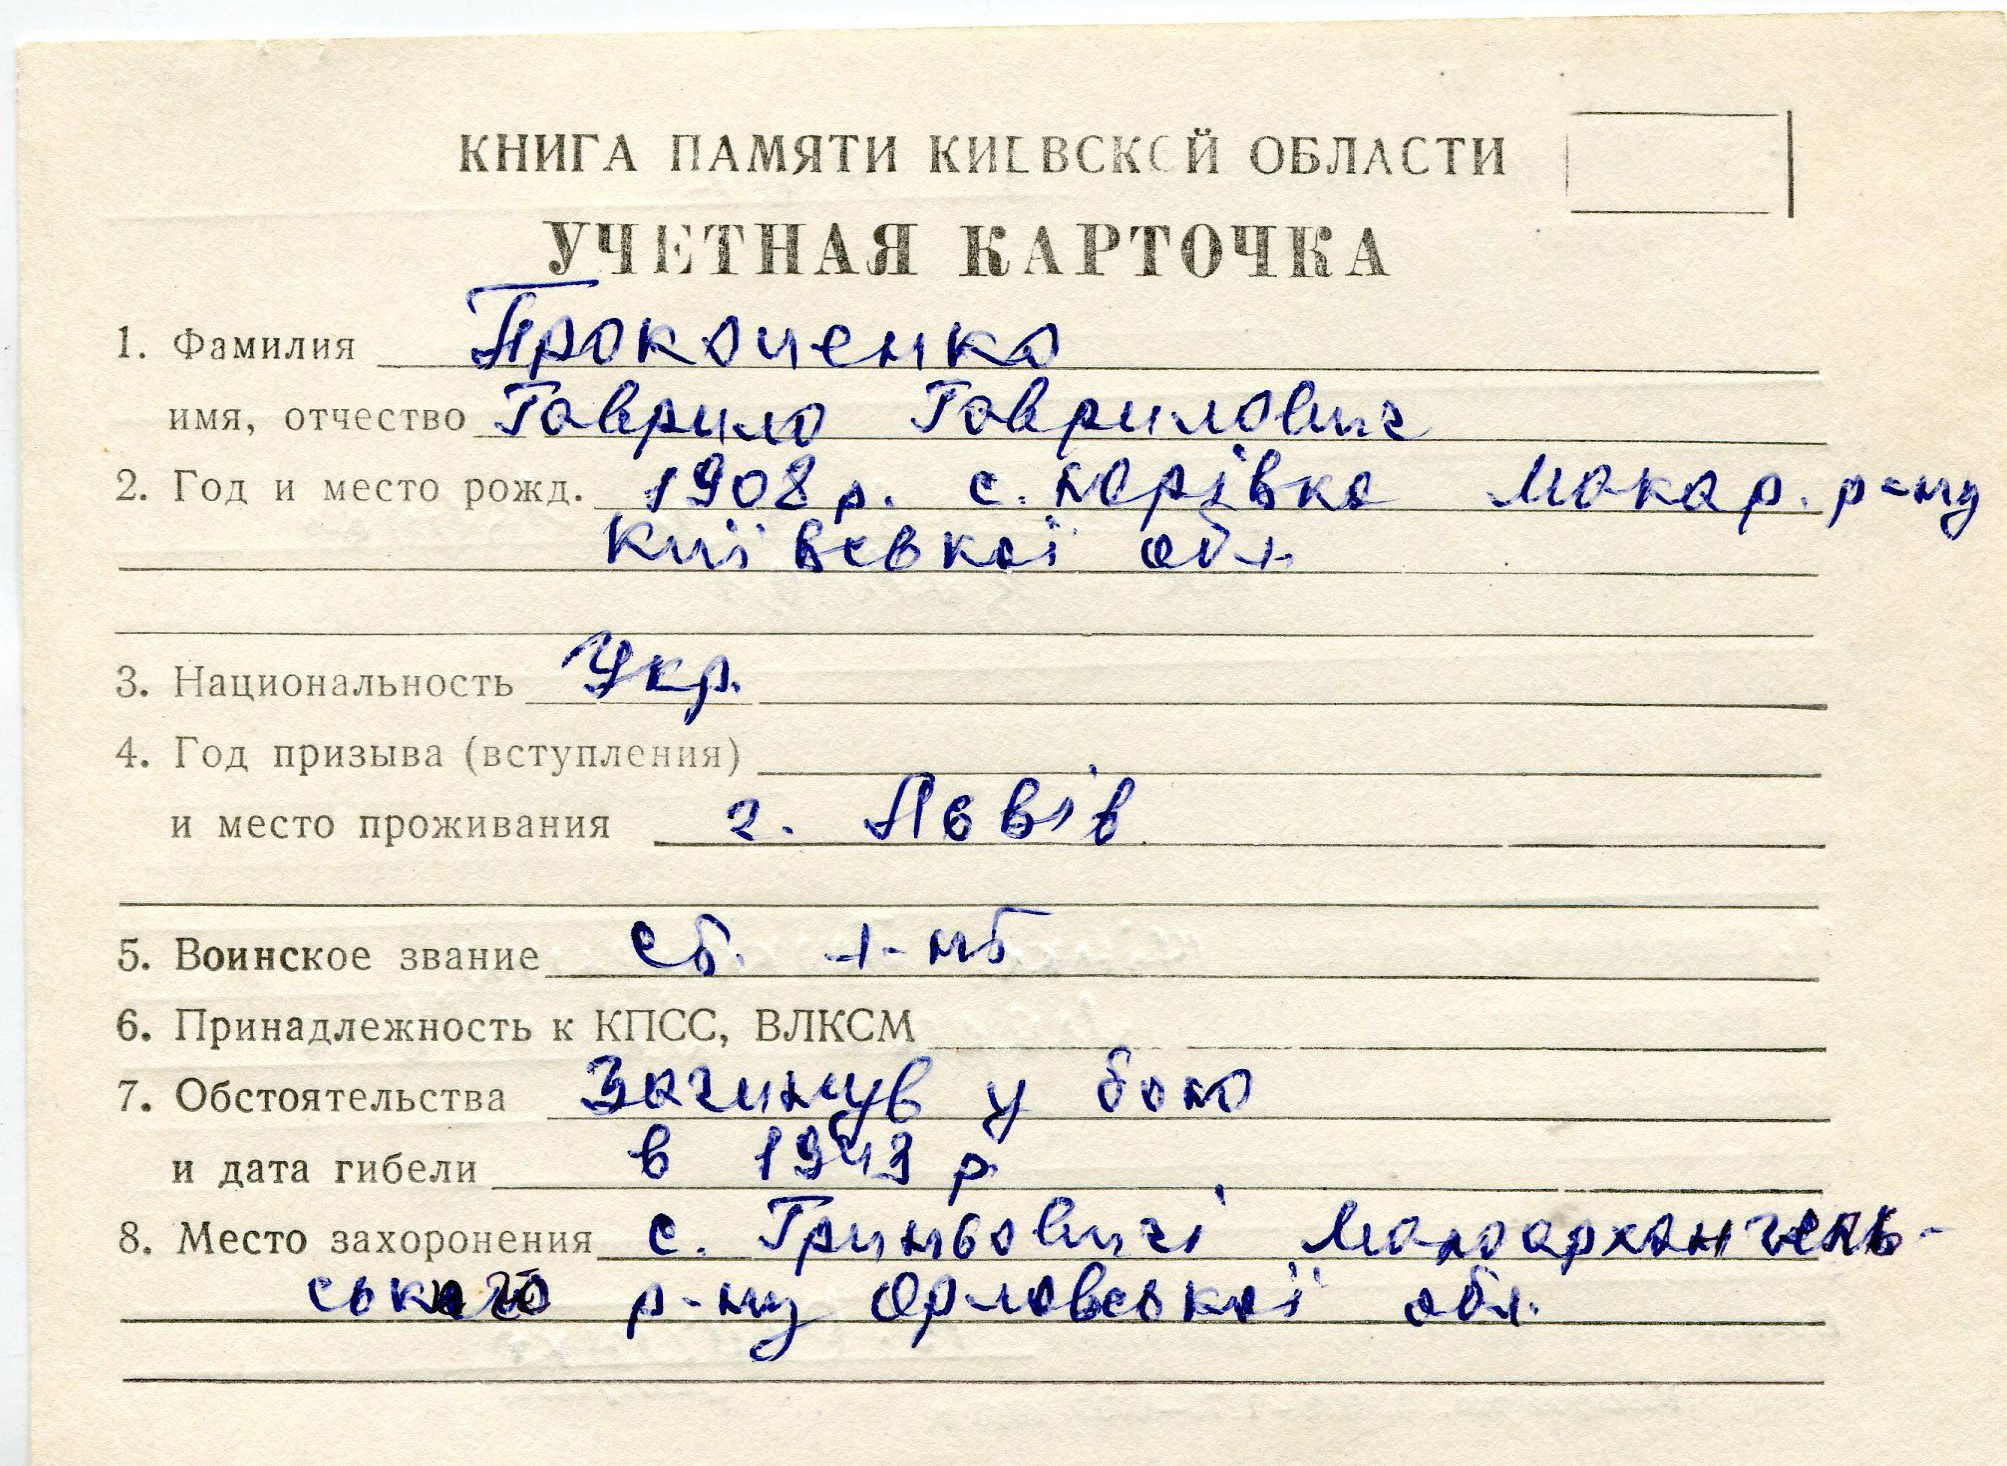 КНИГА ПАМЯТИ КИЕВСКОЙ ОБЛАСТИ
УЧЕТНАЯ КАРТОЧКА
1. Фамилия Прокопенко
имя, отчество Гаврило Гаврилович
2. Год и место рожд. 1908 р. с. Юрівка Макар. р-ну
Київської обл.
3. Национальность Укр.
4. Год призыва (вступления)
и место проживания г. Львів
5. Воинское звание ст. л-нт
6. Принадлежность к КПСС, ВЛКСМ
7. Обстоятельства Загинув у бою
и дата гибели в 1943 р
8. Место захоронения с. Гриньовичі Малоархангель-
ського р-ну Орловської обл.